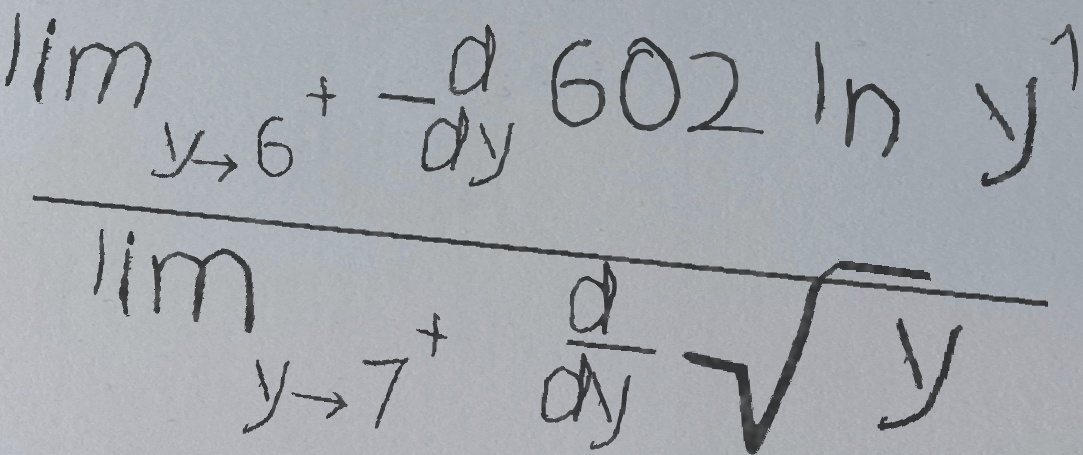 lim y→6⁺ d/dy 602 ln y¹
lim y→7⁺ d/dy √y